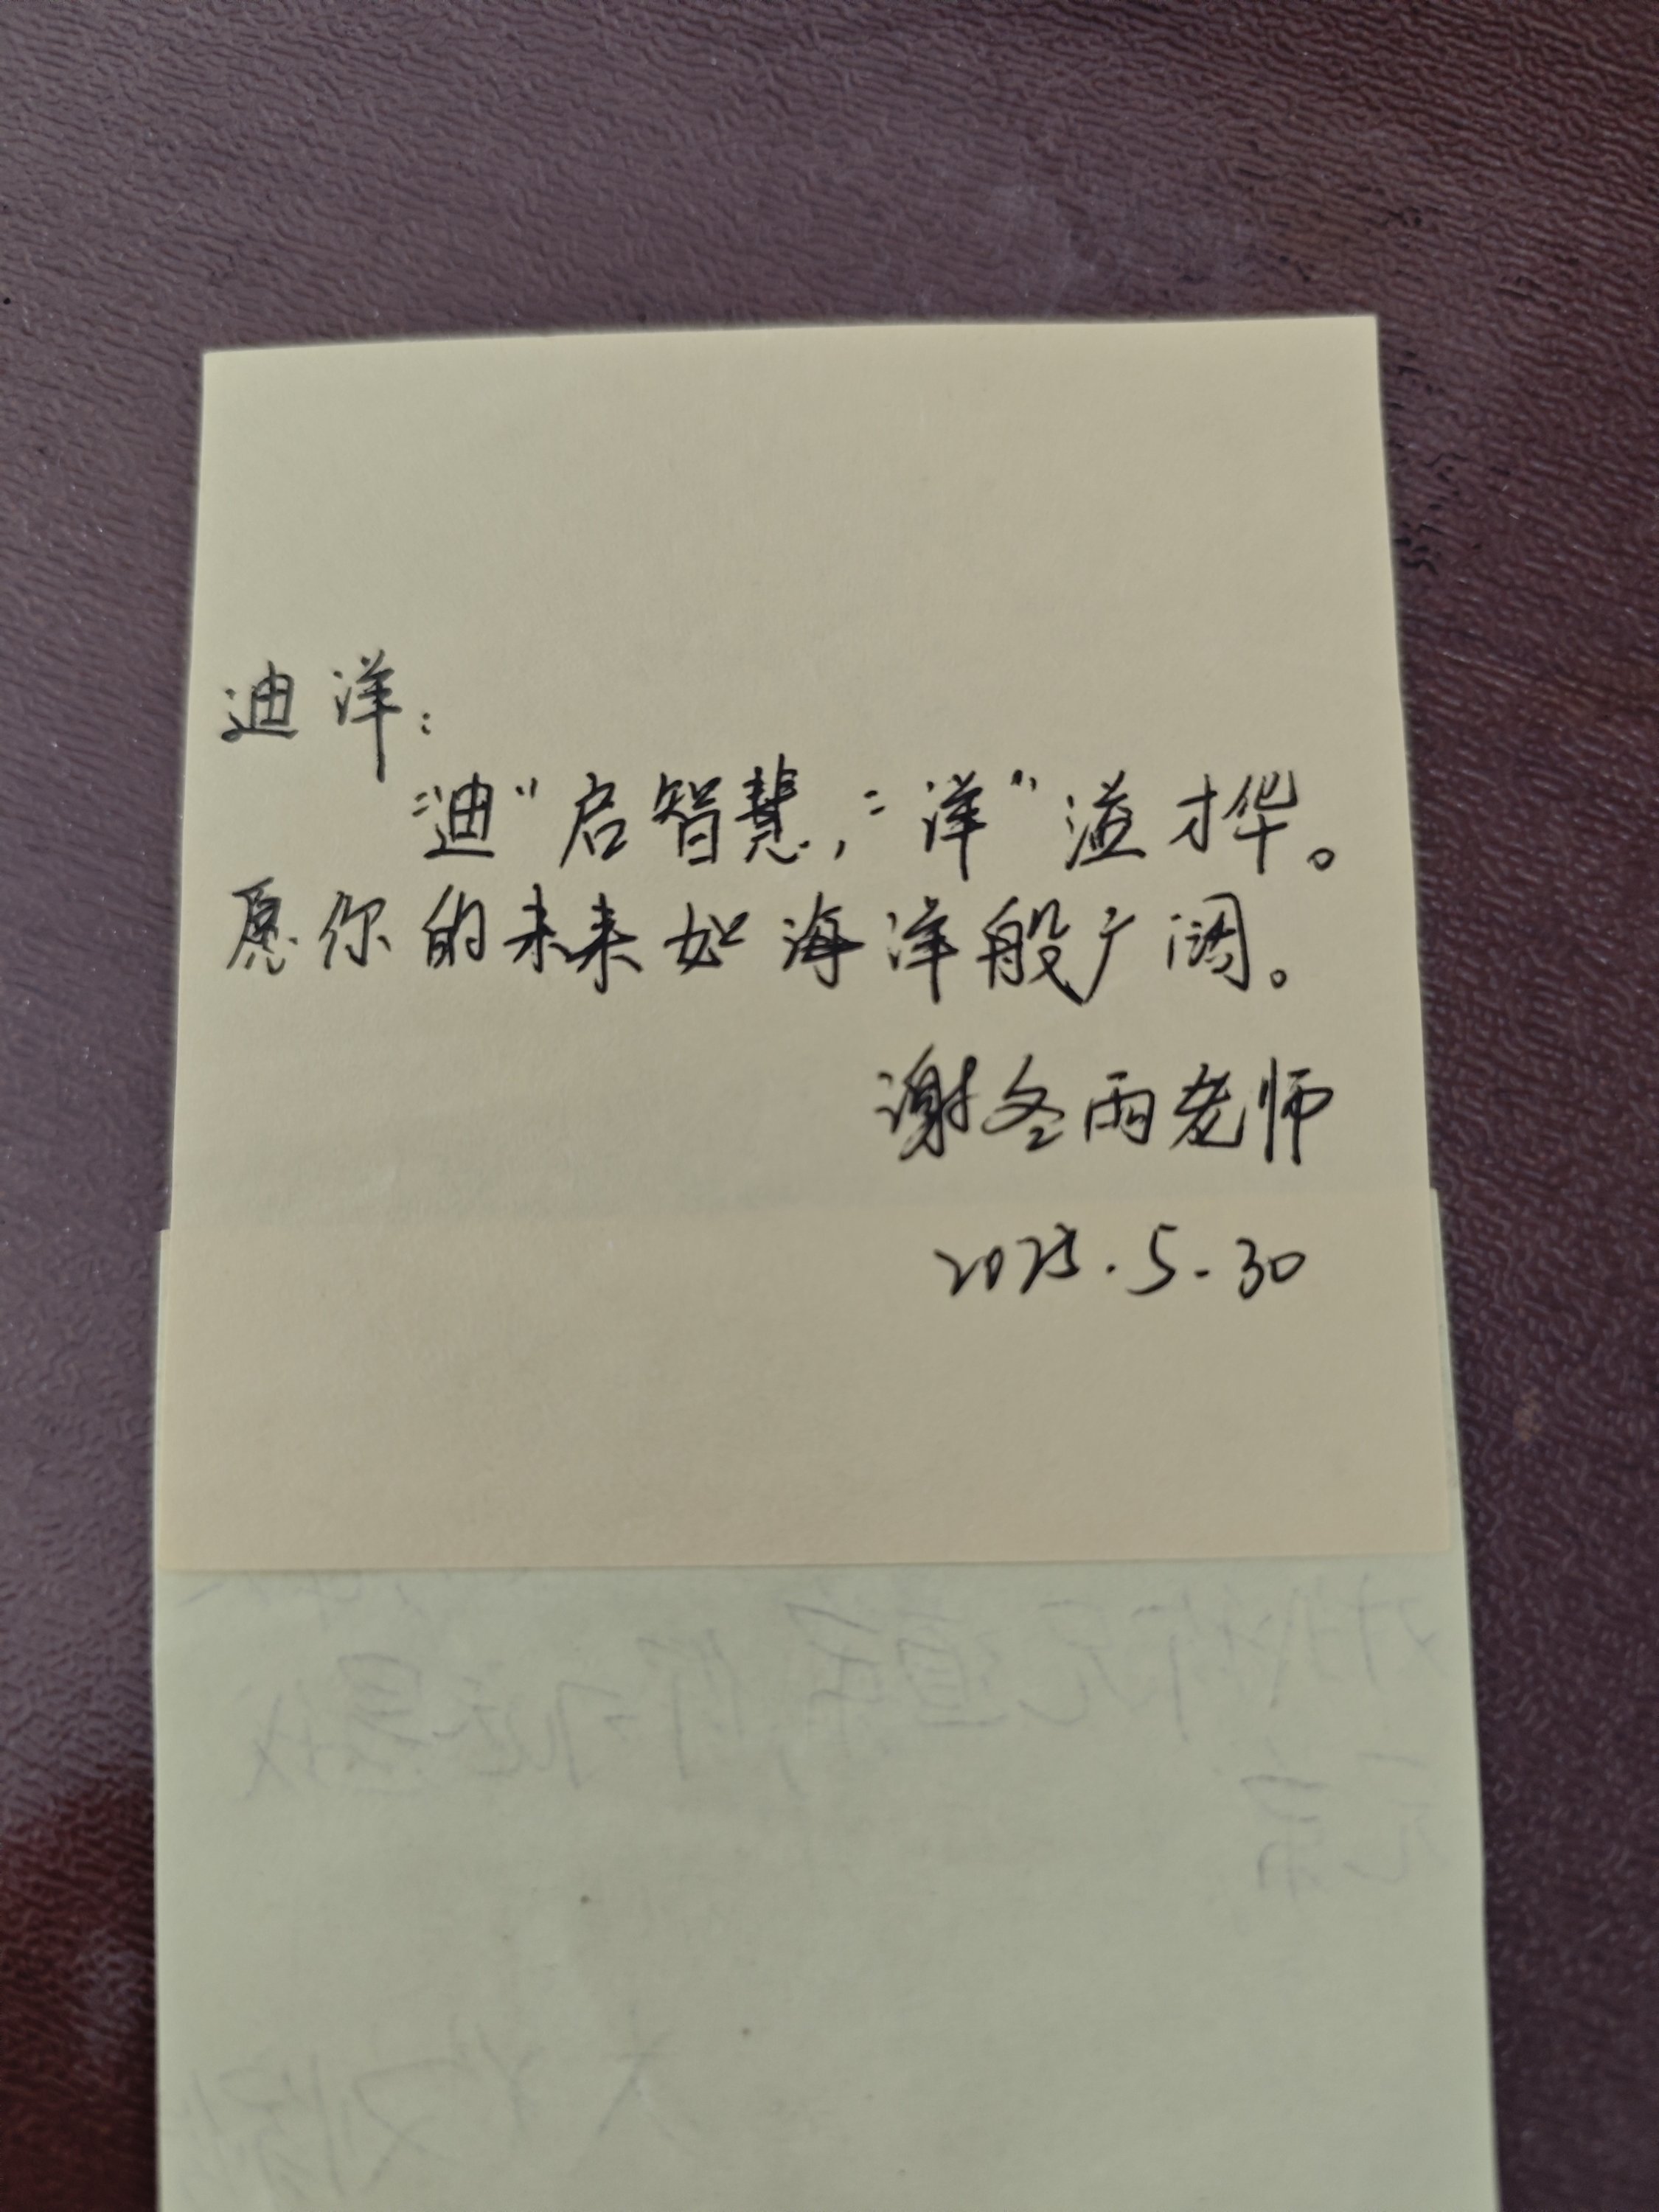 迪洋：
“迪”启智慧，“洋”溢才华。
愿你的未来如海洋般广阔。
谢冬雨老师
2025.5.30